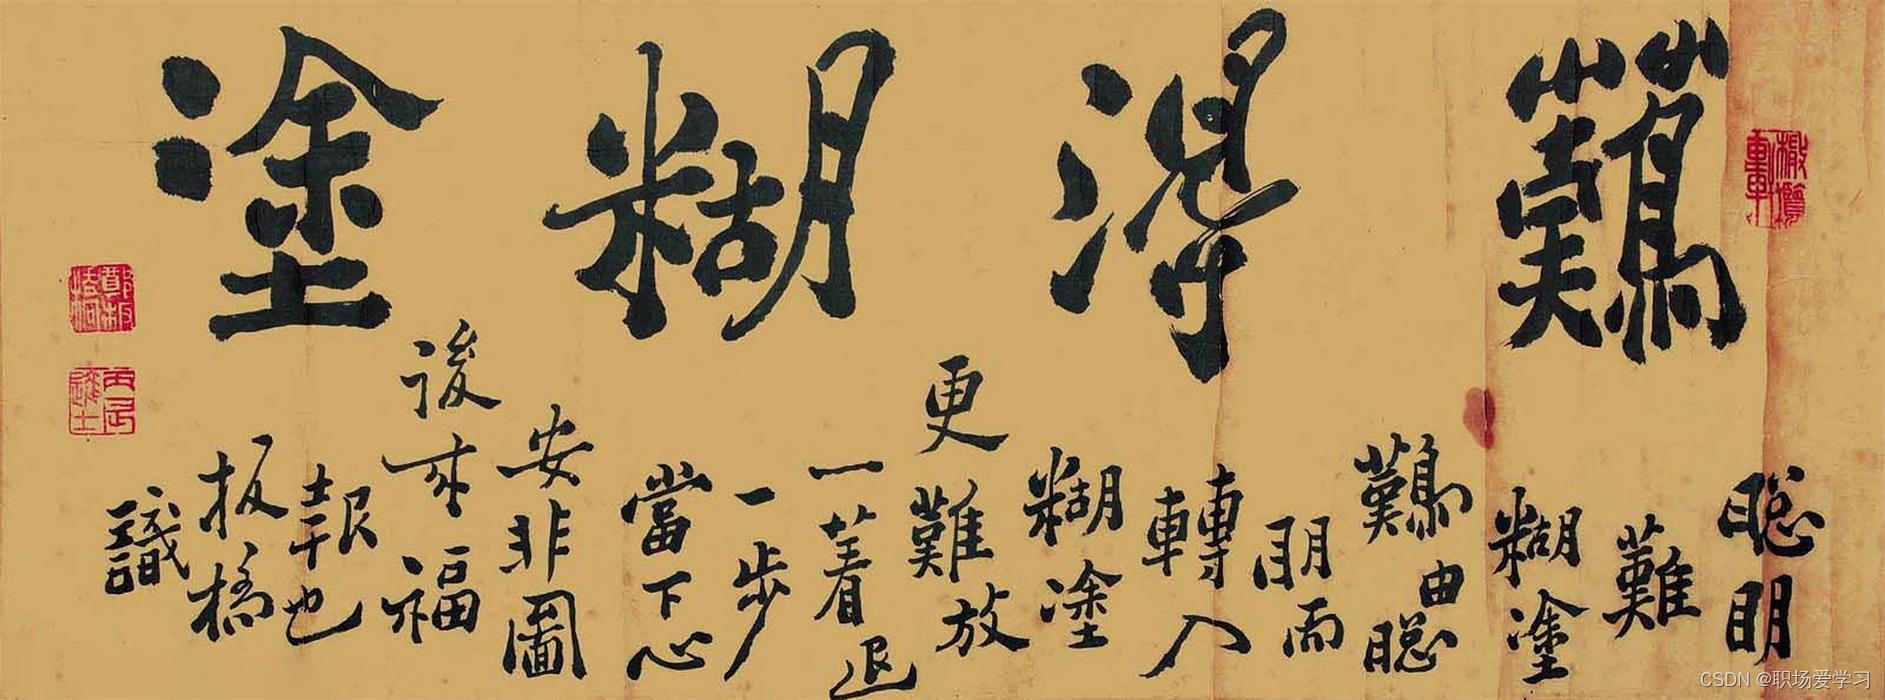 橄欖軒
難得糊塗
聰明
難
糊塗
難由聰
明而
轉入
糊塗
更難放
一着退
一步
當下心
安非圖
後来福
報也
板橋
識
丙辰進士
CSDN @职场爱学习